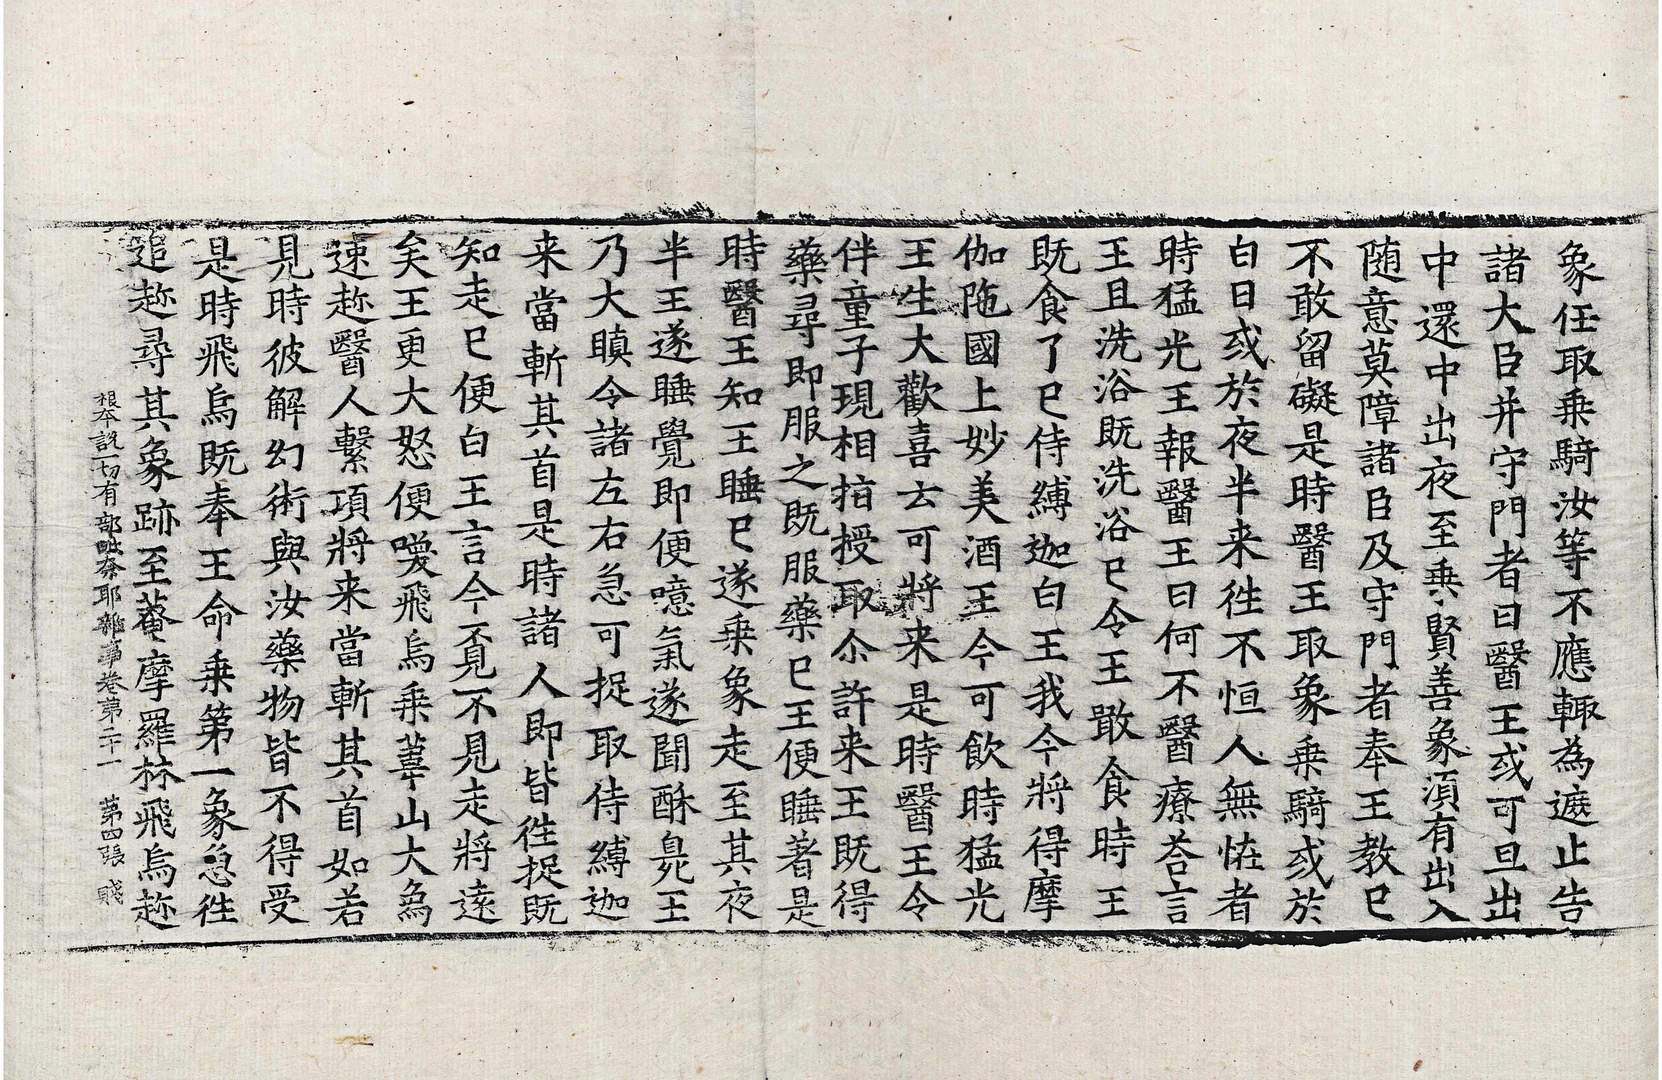 象任取乗騎汝等不應輙為遮止告
諸大臣并守門者曰醫王或可旦出
中還中出夜至乗賢善象湏有出入
随意莫障諸臣及守門者奉王教已
不敢留礙是時醫王取象乗騎或於
白日或於夜半来徃不恒人無恠者
時猛光王報醫王曰何不醫療荅言
王且洗浴既洗浴已令王噉食時王
既食了已侍縛迦白王我今將得摩
伽陁國上妙美酒王今可飲時猛光
王生大歡喜去可將来是時醫王令
伴童子現相指授取尒許来王既得
藥尋即服之既服藥已王便睡著是
時醫王知王睡已遂乗象走至其夜
半王遂睡覺即便噫氣遂聞酥臰王
乃大瞋令諸左右急可捉取侍縛迦
来當斬其首是時諸人即皆徃捉既
知走已便白王言今覔不見走將遠
矣王更大怒便喚飛烏乗葦山大象
速趂醫人繫項將来當斬其首如若
見時彼解幻術與汝藥物皆不得受
是時飛烏既奉王命乗第一象急徃
追趂尋其象跡至菴摩羅林飛烏趂
根本說一切有部毗奈耶雜事卷苐二十一　苐四張　賤